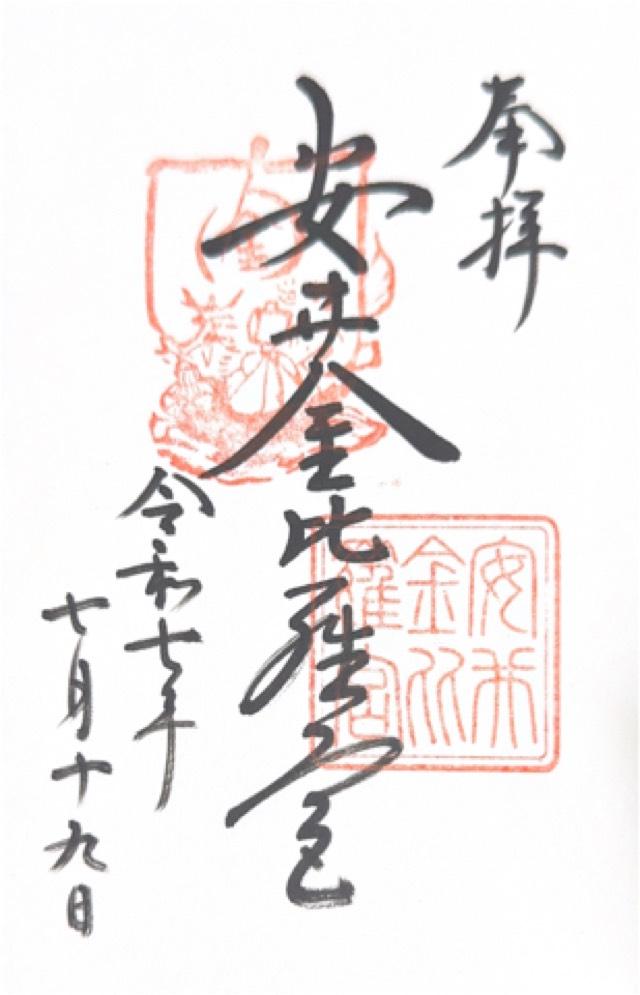 奉拝
安井金比羅宮
安井
金比
羅宮
令和七年
七月十九日